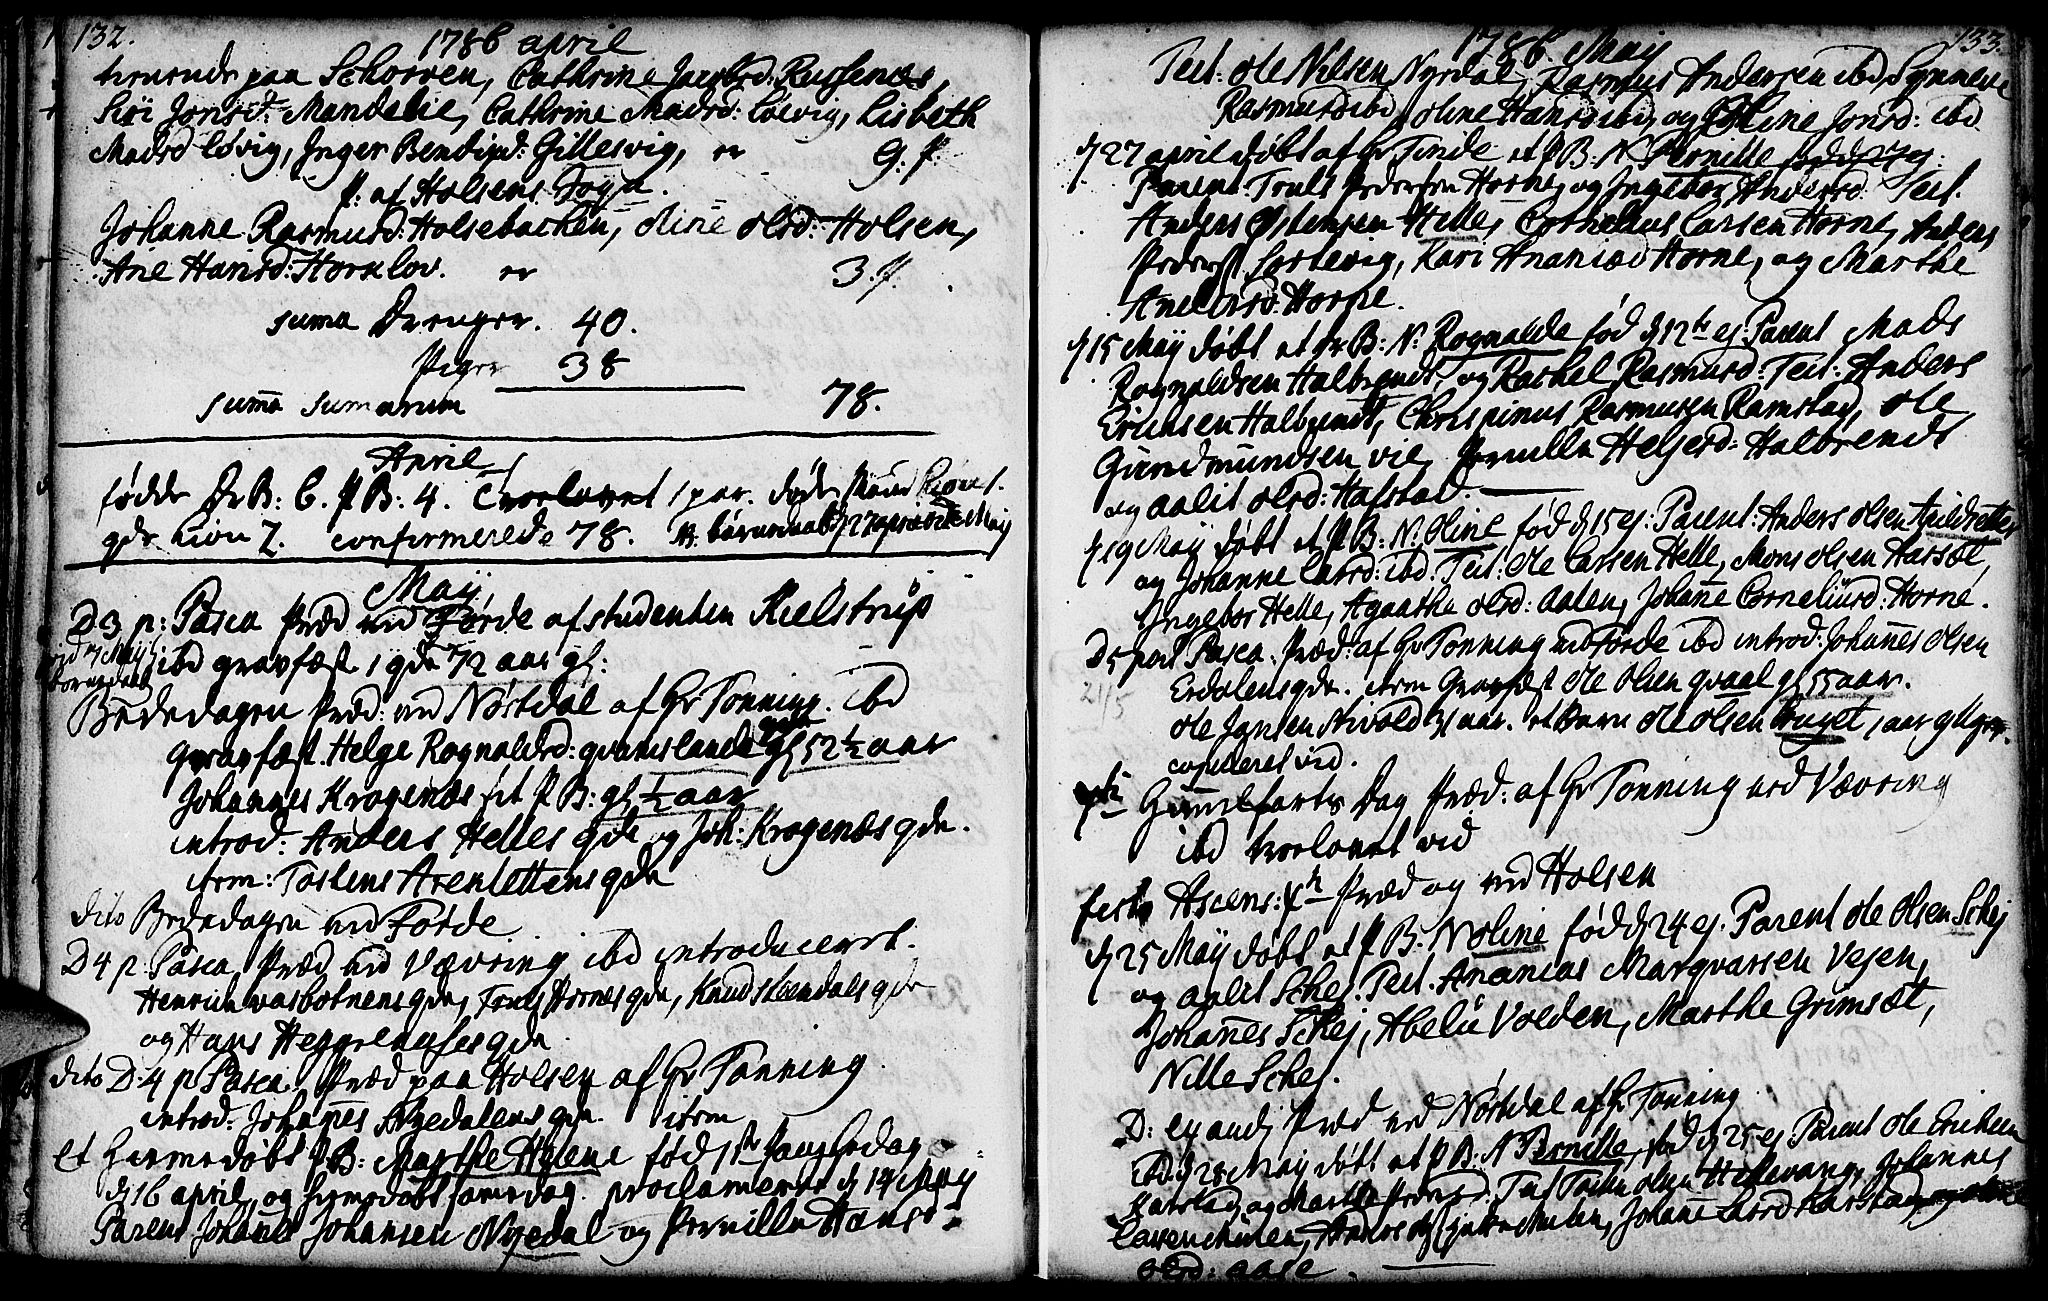 132.
1786 april
paa Schorven, Cathrine Jacobsd: Russenæs,
Siri Jonsd: Mundalie, Cathrine Madsd: Løevig, Lisbeth
Madsd Løvig, Inger Bendixd: Gillesvig, er 9. P
P: af Holsens Sogn.
Johanne Rasmusd: Holsebachen, Oline Olsd: Holsen,
Ane Hansd: Horklov. er 3 P.
Suma Drenger. 40.
Piger 38
Suma Sumarum 78.
April
fødde Dr B: 6. P B: 4. Trolovet 1 par. døde
gde kion 7. confirmerede 78.
May
D 3 p: Pasca Præd ved Førde af studenten Kielstrup
ibd gravfæst 1 gde 72 aar gl:
Bededagen Præd: ved Nøstdal af Hr Tonning. ibd
gravfæst Helge Rognaldsd: qvamslande gl 52 ½ aar
Johannes Krogenæs sit P B: gl ½ aar
introd: Anders Helles gde og Joh: Krogenæs gde.
item: Tostens Arentettens gde
dito Bededagen ved Førde
D 4 p: Pasca, Præd ved Vævring ibd introduceret.
Henrich Vasbotnens gde, Hornes gde, Knud Steendals gde
og Hans gde.
dito D. 4 p Pasca. Præd paa Holsen af Hr Tonning.
introd: Johannes Nyedalens gde. item
et hiemedøbt P B: Marthe Helene fød 1ste
d 16 april, og hjemedøbt samedag. d 14 May
Parent Johannes Johansen Nyedal og Pernille Hansd:
133.
1786. Maij
Test: Ole Nilsen Nyedal, Rasmus Andersen ibd, Synneve
Rasmusd ibd, Oline Hansd ibd, og Oline Jonsd: ibd
d 27 april døbt af Hr Finde et P B: N Pernille fød d 27 ej:
Parent Truls Pedersen Horne, og Ingebor Andersd: Test.
Anders Østensen Helle, Cornelius Larsen Horne, Anders
Pedersen Sørtevig, Kari Ananiæd Horne, og Marthe
Andersd Horne.
d 15 Maij døbt et Dr B: N: Rognalde fød d 12te ej: Parent Mads
Rognaldsen Halbrendt, og Rachel Rasmusd: Test: Anders
Erichsen Halbrendt, Chrispinus Rasmusen Ramstad, Ole
Gundmundsen Vie, Pernille Helgesd: Halbrendt
og Aalit Olsd: Hafstad.
d 19 Maij døbt et P B: N. Oline fød d 15 ej: Parent: Anders Olsen
og Johanne Larsd: ibd. Test: Ole Larsen Helle, Mons Olsen Harsæt,
Ingebor Helle, Agaathe Olsd: Aalen, Johanne Corneliusd: Horne.
D 5 post Pasca. Præd: af Hr Tonning ved Førde ibd introd: Johannes Olsen
21/5
Erdalens gde. item Gravfæst Ole Olsen qvaal gl 55 aar.
Ole Jansen aar. et Barn Ole Olsen 1 aar
copuleret vid.
Himmelfarts Dag Præd: af Hr Tonning ved Vævring
ibd trolovet vid
festo Ascens: Præd og ved Holsen
d 25 Maij døbt et P B: N Oline fød d 24 ej. Parent Ole Olsen Schej
og Aalit Schej. Test. Ananias Marqvarsen Vejen,
Johannes Schej, Abelü Volden, Marthe Grimsæt,
Nille Schej.
D: exaudj Præd ved Nøstdal af Hr Tonning
ibd. d 28 Maij døbt et P B. N Pernille, fød d 25 ej Parent Ole Erichsen
og Marthe Pedersd: Test Olsen Hellevang, Johannes
Larsen, Anders, Johanne Larsd
Olsd: Aase.